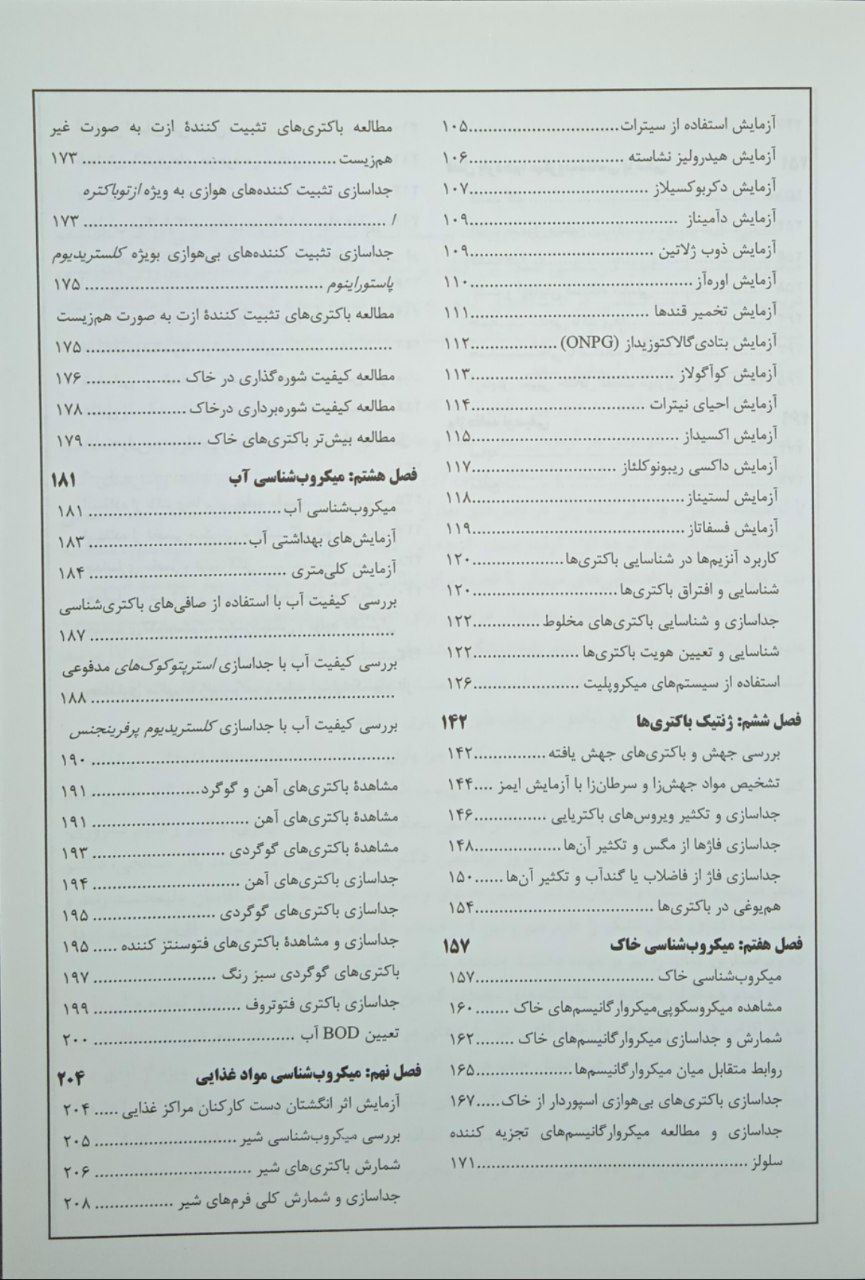 آزمایش استفاده از سیترات..............................۱۰۵
آزمایش هیدرولیز نشاسته ..............................۱۰۶
آزمایش دکربوکسیلاز ....................................۱۰۷
آزمایش دآمیناز ..........................................۱۰۹
آزمایش ذوب ژلاتین .....................................۱۰۹
آزمایش اوره‌آز............................................۱۱۰
آزمایش تخمیر قندها ....................................۱۱۱
آزمایش بتادی‌گالاکتوزیداز (ONPG) .................۱۱۲
آزمایش کوآگولاز .........................................۱۱۳
آزمایش احیای نیترات ..................................۱۱۴
آزمایش اکسیداز .........................................۱۱۵
آزمایش داکسی ریبونوکلئاز ............................۱۱۷
آزمایش لستیناز...........................................۱۱۸
آزمایش فسفاتاز...........................................۱۱۹
کاربرد آنزیم‌ها در شناسایی باکتری‌ها..................۱۲۰
شناسایی و افتراق باکتری‌ها.............................۱۲۰
جداسازی و شناسایی باکتری‌های مخلوط .............۱۲۲
شناسایی و تعیین هویت باکتری‌ها .....................۱۲۲
استفاده از سیستم‌های میکروپلیت .....................۱۲۶
فصل ششم: ژنتیک باکتری‌ها ۱۴۲
بررسی جهش و باکتری‌های جهش یافته...............۱۴۲
تشخیص مواد جهش‌زا و سرطان‌زا با آزمایش ایمز ....۱۴۴
جداسازی و تکثیر ویروس‌های باکتریایی ..............۱۴۶
جداسازی فاژها از مگس و تکثیر آن‌ها.................۱۴۸
جداسازی فاژ از فاضلاب یا گندآب و تکثیر آن‌ها......۱۵۰
هم‌یوغی در باکتری‌ها ...................................۱۵۴
فصل هفتم: میکروب‌شناسی خاک ۱۵۷
میکروب‌شناسی خاک ...................................۱۵۷
مشاهده میکروسکوپی‌میکروارگانیسم‌های خاک .......۱۶۰
شمارش و جداسازی میکروارگانیسم‌های خاک ........۱۶۲
روابط متقابل میان میکروارگانیسم‌ها...................۱۶۵
جداسازی باکتری‌های بی‌هوازی اسپوردار از خاک.....۱۶۷
جداسازی و مطالعه میکروارگانیسم‌های تجزیه کننده
سلولز .....................................................۱۷۱
مطالعه باکتری‌های تثبیت کنندهٔ ازت به صورت غیر
هم‌زیست ................................................ ۱۷۳
جداسازی تثبیت کننده‌های هوازی به ویژه ازتوباکتره
ا ........................................................... ۱۷۳
جداسازی تثبیت کننده‌های بی‌هوازی بویژه کلستریدیوم
پاستوراینوم .............................................. ۱۷۵
مطالعه باکتری‌های تثبیت کنندهٔ ازت به صورت هم‌زیست
............................................................. ۱۷۵
مطالعه کیفیت شوره‌گذاری در خاک .................... ۱۷۶
مطالعه کیفیت شوره‌برداری درخاک .................... ۱۷۸
مطالعه بیش‌تر باکتری‌های خاک ....................... ۱۷۹
فصل هشتم: میکروب‌شناسی آب ۱۸۱
میکروب‌شناسی آب...................................... ۱۸۱
آزمایش‌های بهداشتی آب............................... ۱۸۳
آزمایش کلی‌متری ....................................... ۱۸۴
بررسی کیفیت آب با استفاده از صافی‌های باکتری‌شناسی
............................................................. ۱۸۷
بررسی کیفیت آب با جداسازی استرپتوکوک‌های مدفوعی
............................................................. ۱۸۸
بررسی کیفیت آب با جداسازی کلستریدیوم پرفرینجنس
............................................................. ۱۹۰
مشاهدهٔ باکتری‌های آهن و گوگرد...................... ۱۹۱
مشاهدهٔ باکتری‌های آهن ............................... ۱۹۱
مشاهدهٔ باکتری‌های گوگردی .......................... ۱۹۳
جداسازی باکتری‌های آهن .............................. ۱۹۴
جداسازی باکتری‌های گوگردی ......................... ۱۹۵
جداسازی و مشاهدهٔ باکتری‌های فتوسنتز کننده ..... ۱۹۵
باکتری‌های گوگردی سبز رنگ ......................... ۱۹۷
جداسازی باکتری فتوتروف .............................. ۱۹۹
تعیین BOD آب ......................................... ۲۰۰
فصل نهم: میکروب‌شناسی مواد غذایی ۲۰۴
آزمایش اثر انگشتان دست کارکنان مراکز غذایی ..... ۲۰۴
بررسی میکروب‌شناسی شیر ............................ ۲۰۵
شمارش باکتری‌های شیر ............................... ۲۰۶
جداسازی و شمارش کلی فرم‌های شیر ................ ۲۰۸